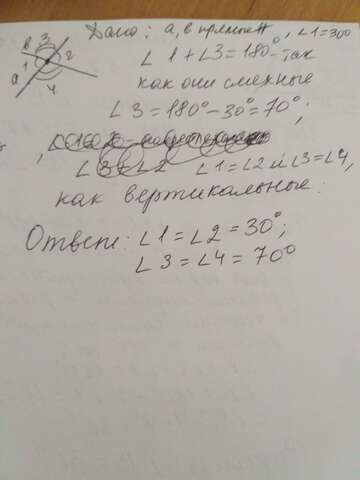 Дано: а, в прямые, ∠1=30°
в 3
1 2
а 4
∠1+∠3=180°-так
как они смежные
∠3=180°-30°=70°;
∠1=∠2 и ∠3=∠4,
как вертикальные.
Ответ: ∠1=∠2=30°;
∠3=∠4=70°